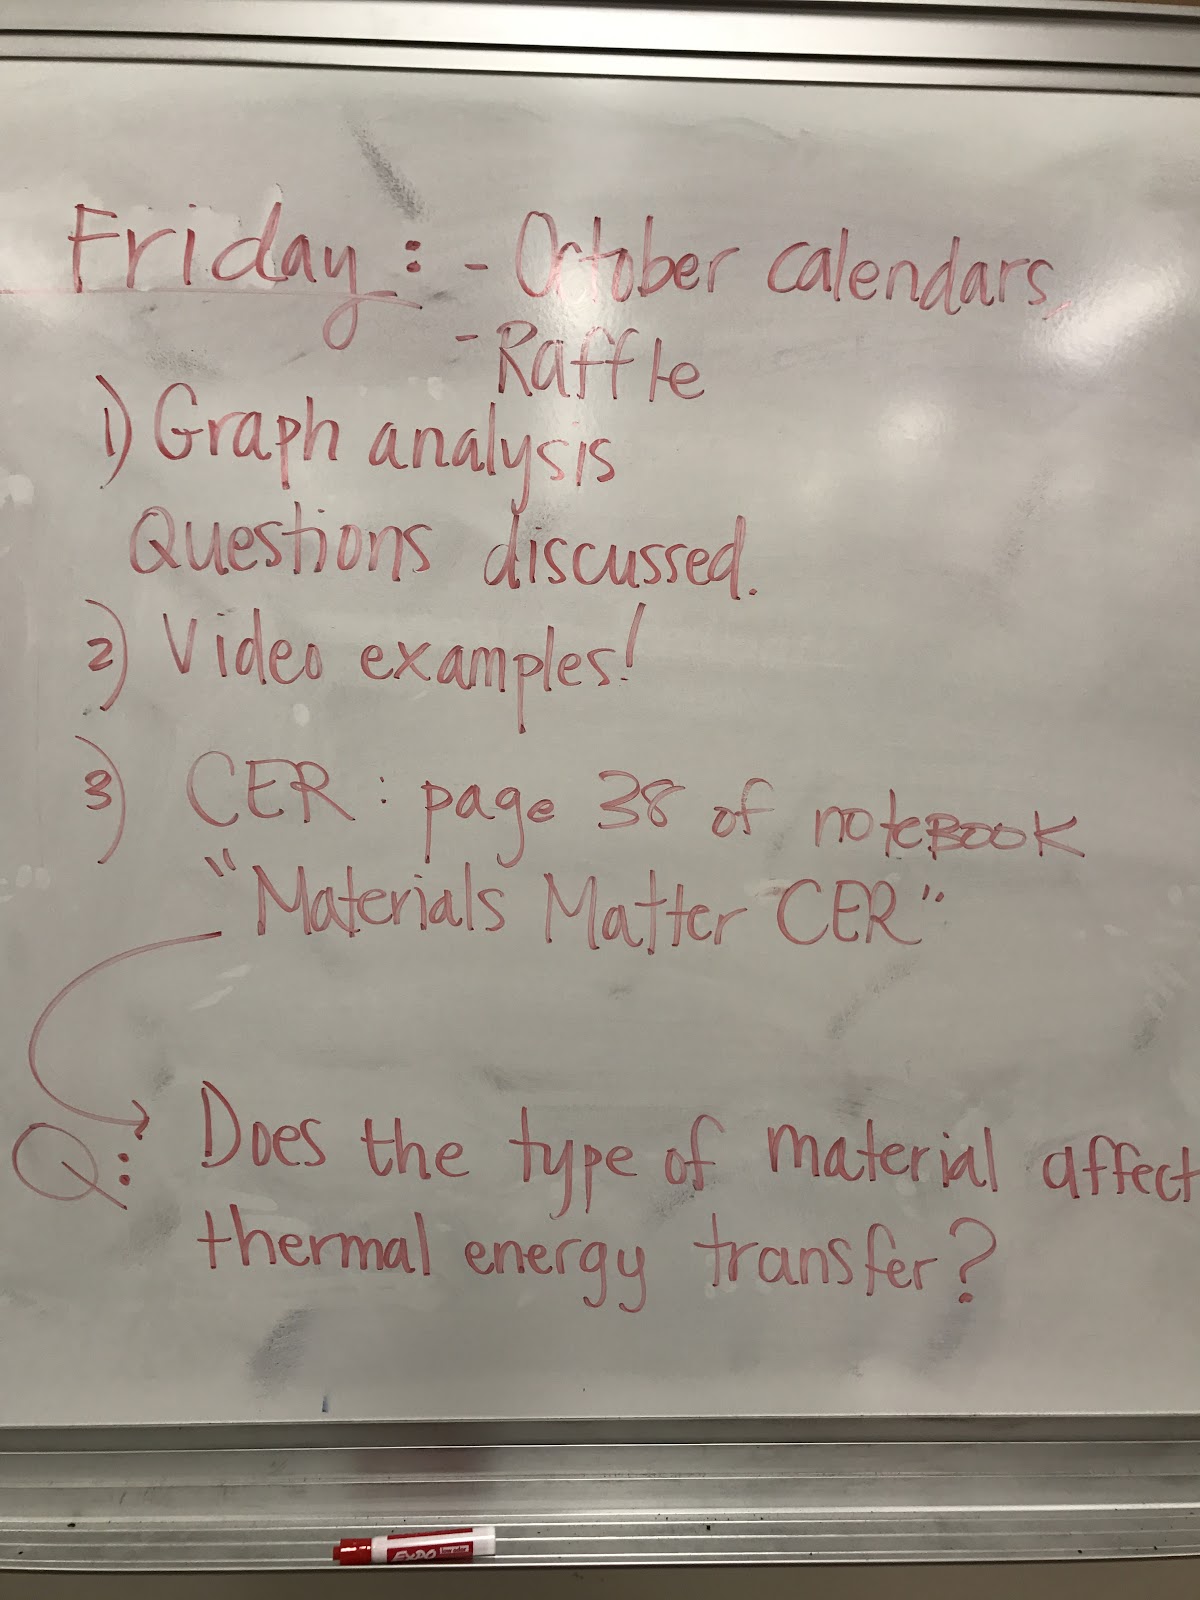 Friday: - October calendars
- Raffle
1) Graph analysis
Questions discussed.
2) Video examples!
3) CER: page 38 of noteBOOK
"Materials Matter CER"
Q: Does the type of material affect
thermal energy transfer?
EXPO